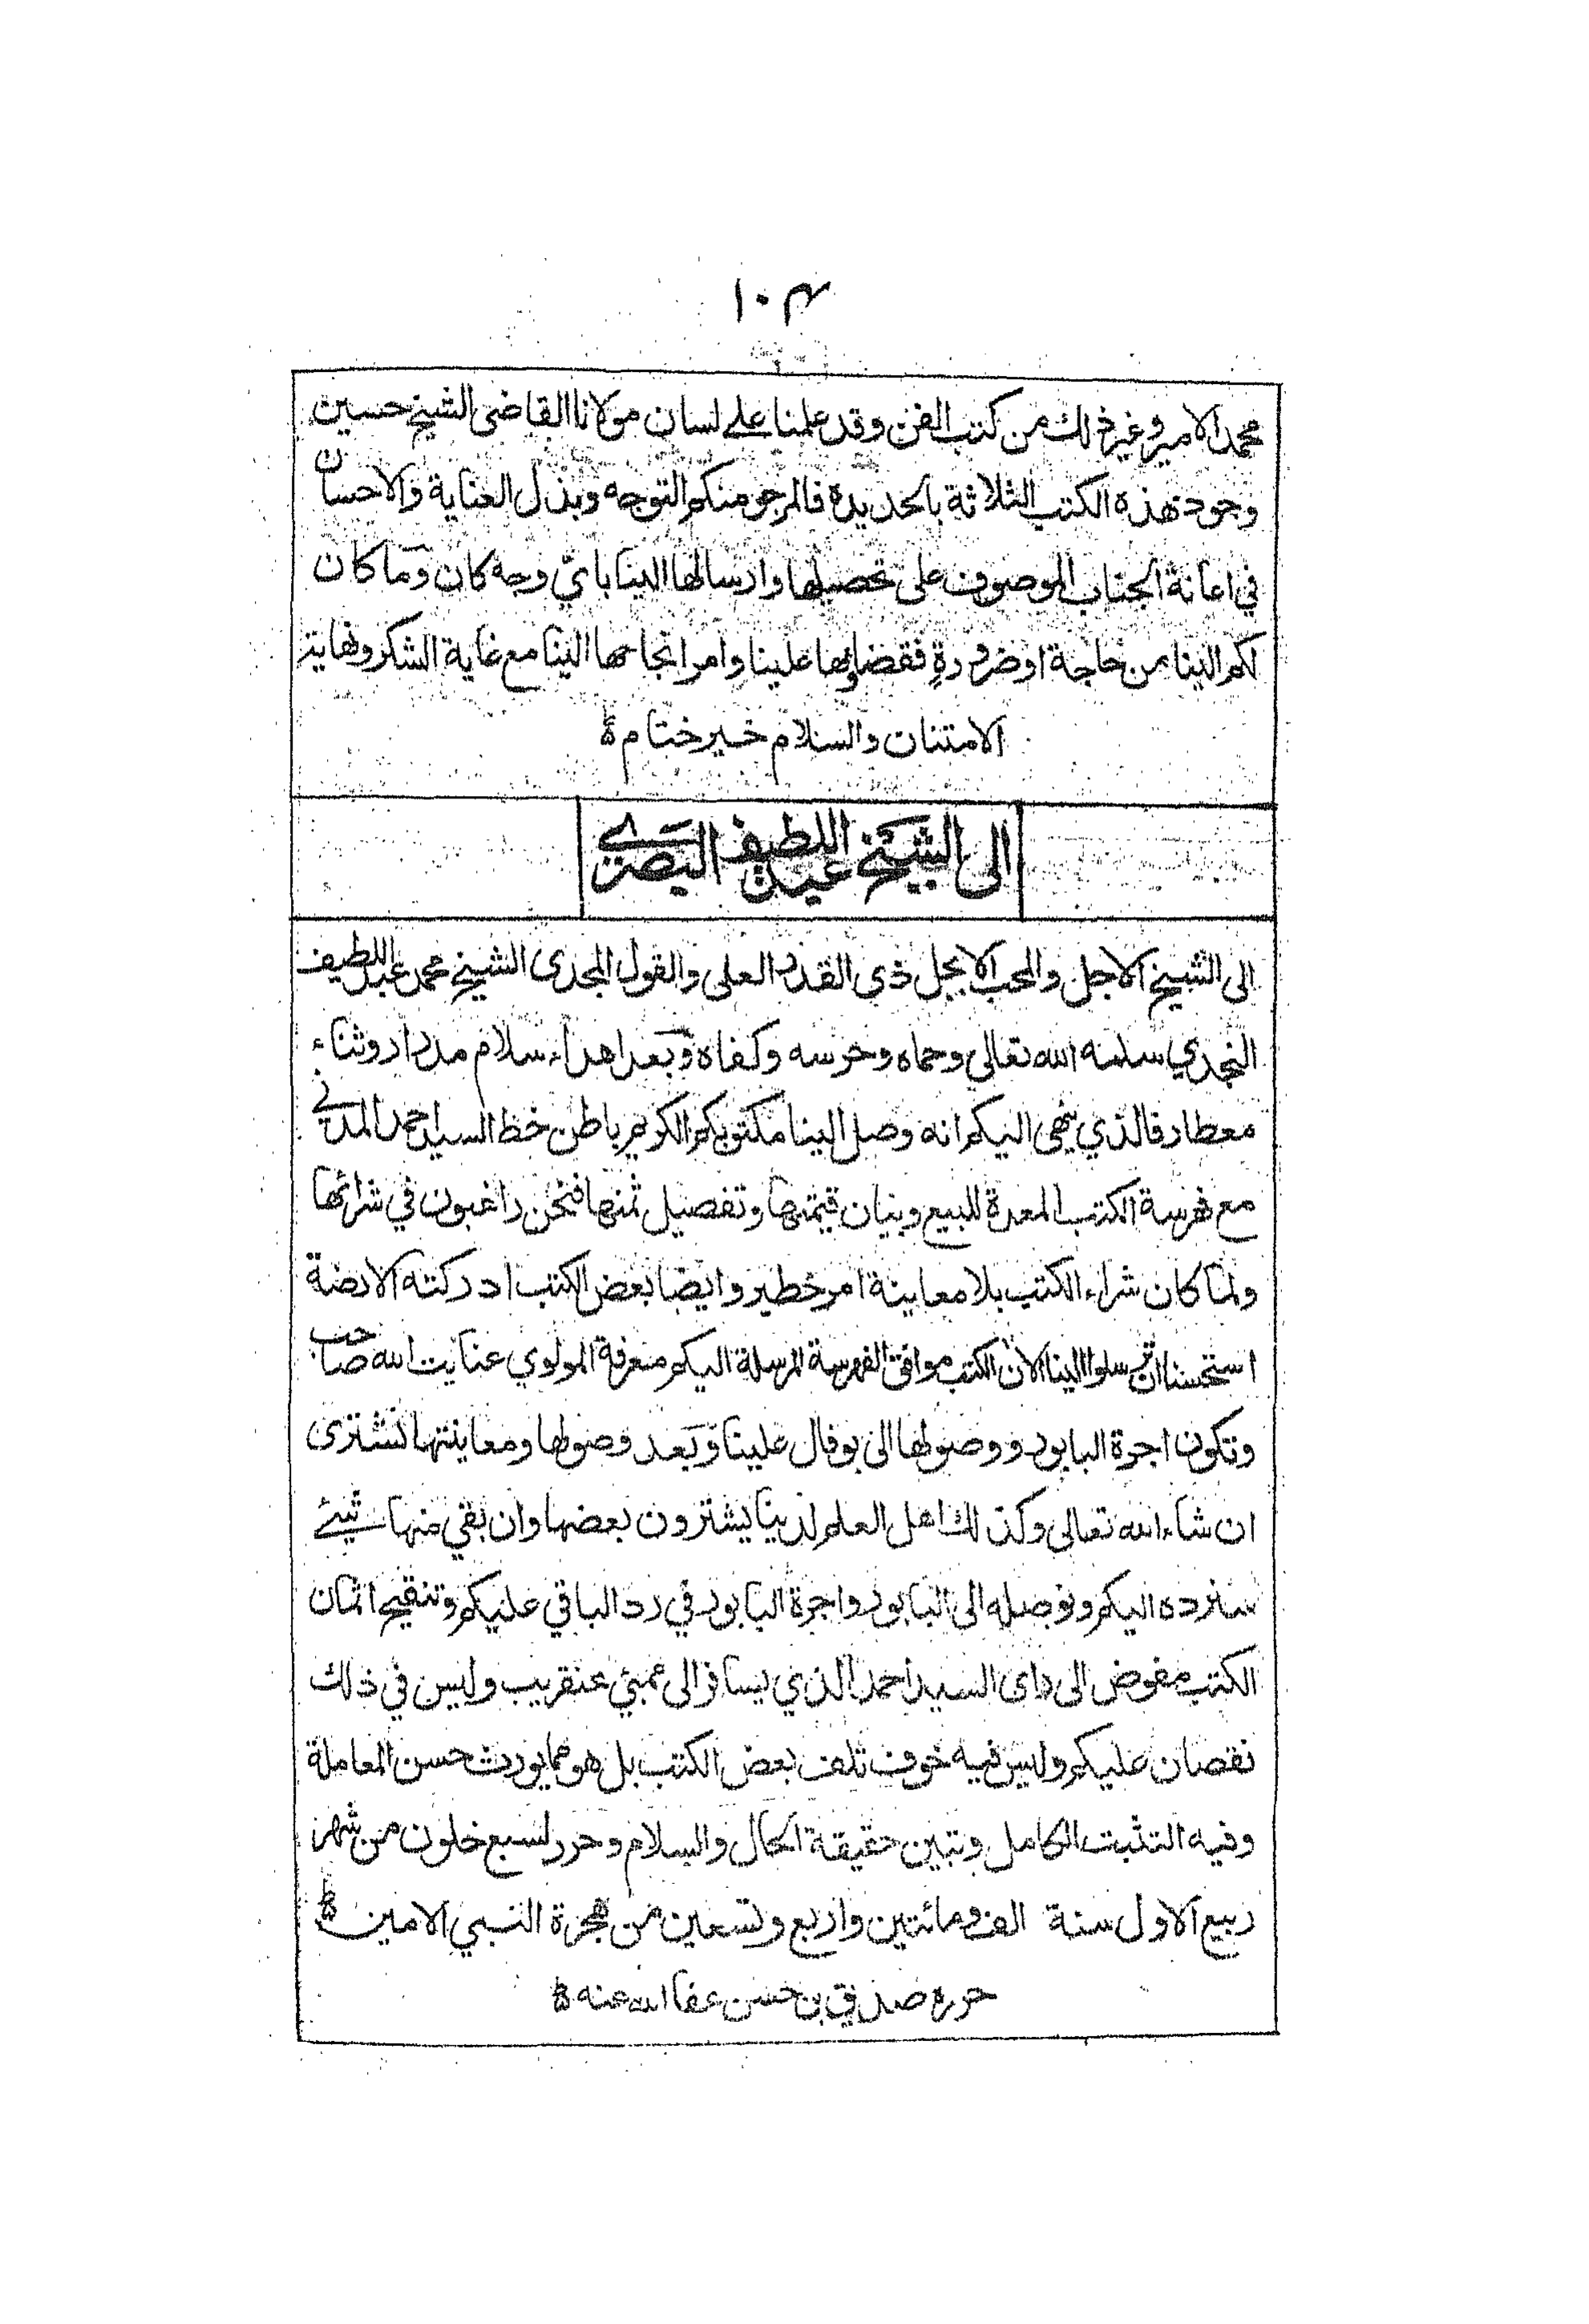 ١٠٤
محمد الامير وغير ذلك من كتب الفن وقد علمنا على لسان مولانا القاضى الشيخ حسين
وجود هذه الكتب الثلاثة بالحديدة فالمرجو منكم التوجه وبذل العناية والاحسان
في اعانة الجناب الموصوف على تحصيلها وارسالها الينا باىّ وجه كان وما كان
لكم الينا من حاجة او ضرورةٍ فقضاؤها علينا وامر انجاحها الينا مع غاية الشكر ونهاية
الامتنان والسلام خير ختام
الى الشيخ عبد اللطيف البصرى
الى الشيخ الاجل والمحب الابجل ذى القدر العلى والقول المجدى الشيخ محمد عبد اللطيف
النجدي سلمه الله تعالى وحماه وحرسه وكفاه وبعد اهداء سلام مدرار وثناء
معطار فالذي ينهى اليكم انه وصل الينا مكتوبكم الكريم باطن خط السيد احمد المدني
مع فهرسة الكتب المعدة للبيع وبيان قيمتها وتفصيل ثمنها فنحن راغبون في شرائها
ولما كان شراء الكتب بلا معاينة امر خطير وايضا بعض الكتب ادركته الارضة
استحسنا ان ترسلوا الينا الان الكتب موافق الفهرسة المرسلة اليكم معرفة المولوي عنايت الله صاحب
وتكون اجرة البابور ووصولها الى بوفال علينا وبعد وصولها ومعاينتها نشترى
ان شاء الله تعالى وكذلك اهل العلم لدينا يشترون بعضها وان بقي منها شيئ
سنرده اليكم ونوصله الى البابور واجرة البابور في رد الباقي عليكم وتنقيح اثمان
الكتب مفوض الى راى السيد احمد الذي يسافر الى بمبئي عنقريب وليس في ذلك
نقصان عليكم وليس فيه خوف تلف بعض الكتب بل هو مما يورث حسن المعاملة
وفيه التثبت الكامل وتبين حقيقة الحال والسلام وحرر لسبع خلون من شهر
ربيع الاول سنة الف ومائتين واربع وتسعين من هجرة النبي الامين
حرره صديق بن حسن عفا الله عنه